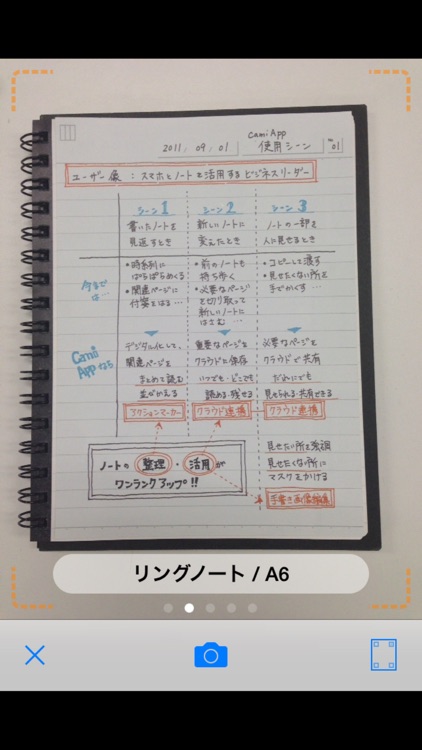 CamiApp
2011. 09. 01 使用シーン No 01
ユーザー像：スマホとノートを活用するビジネスリーダー
シーン1 シーン2 シーン3
書いたノートを 新しいノートに ノートの一部を
見返すとき 変えたとき 人に見せるとき
今までは…
・時系列に
ぱらぱらめくる
・関連ページに
付箋をはる…
・前のノートも
持ち歩く
・必要なページ
を切り取って
新しいノートに
はさむ…
・コピーして渡す
・見せたくない所を
手でかくす…
CamiAppなら
デジタル化して、
関連ページを
まとめて読む
並びかえる
アクションマーカー
重要なページを
クラウドに保存
いつでも・どこでも
読める・残せる
クラウド連携
必要なページを
クラウドで共有
だれにでも
見せられる・共有できる
クラウド連携
ノートの 整理・活用 が
ワンランクアップ!!
見せたい所を強調
見せたくない所に
マスクをかける
手書き画像編集
リングノート / A6